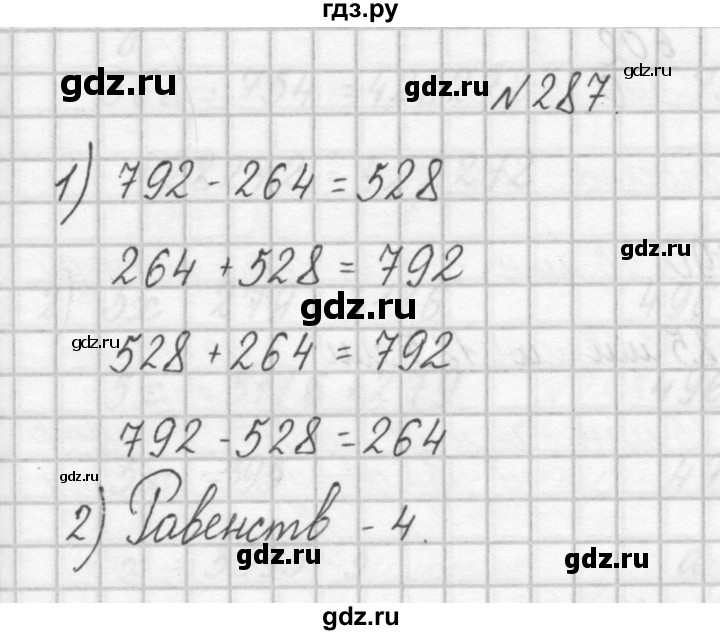 гдз.ру
gdz.ru gdz.ru gdz.ru
№ 287.
1) 792 - 264 = 528
gdz.ru
264 + 528 = 792
gdz.ru
gdz.ru
528 + 264 = 792
792 - 528 = 264
gdz.ru
2) Равенств - 4.
gdz.ru gdz.ru
gdz.ru